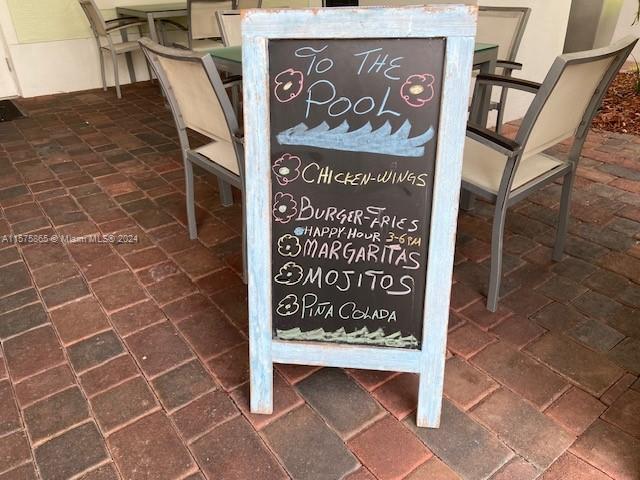 To THE
POOL
CHICKEN-WINGS
BURGER-FRIES
HAPPY HOUR 3-6PM
MARGARITAS
MOJITOS
PIÑA COLADA
A11575865 © Miami MLS ® 2024